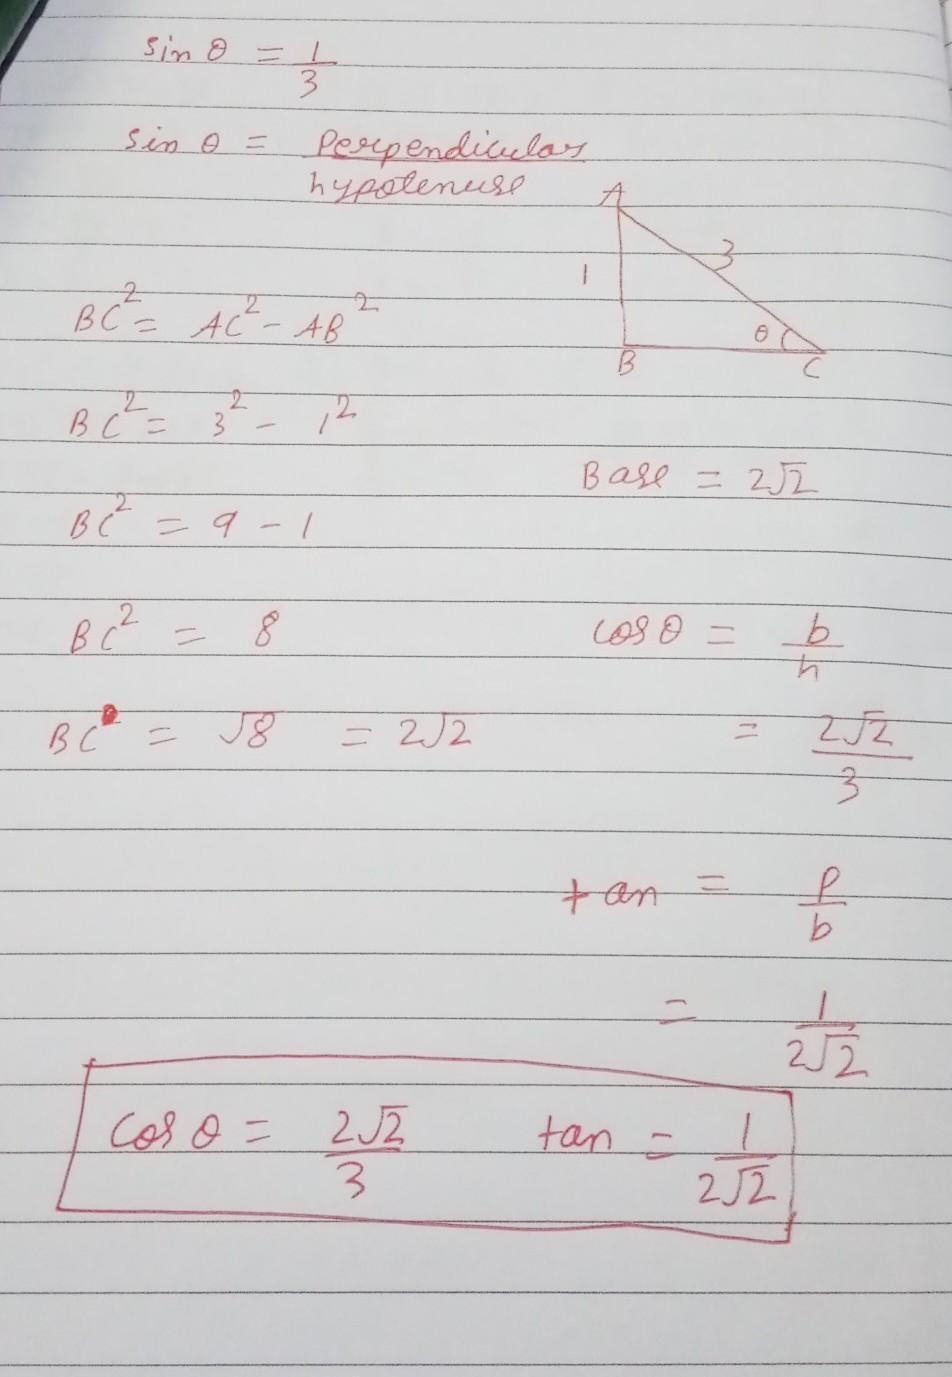 sin θ = 1/3
sin θ = Perpendicular/hypotenuse
A
3
1
θ
B
C
BC² = AC² - AB²
BC² = 3² - 1²
Base = 2√2
BC² = 9 - 1
BC² = 8
cos θ = b/h
BC = √8 = 2√2
= 2√2/3
tan = P/b
= 1/2√2
cos θ = 2√2/3 tan = 1/2√2